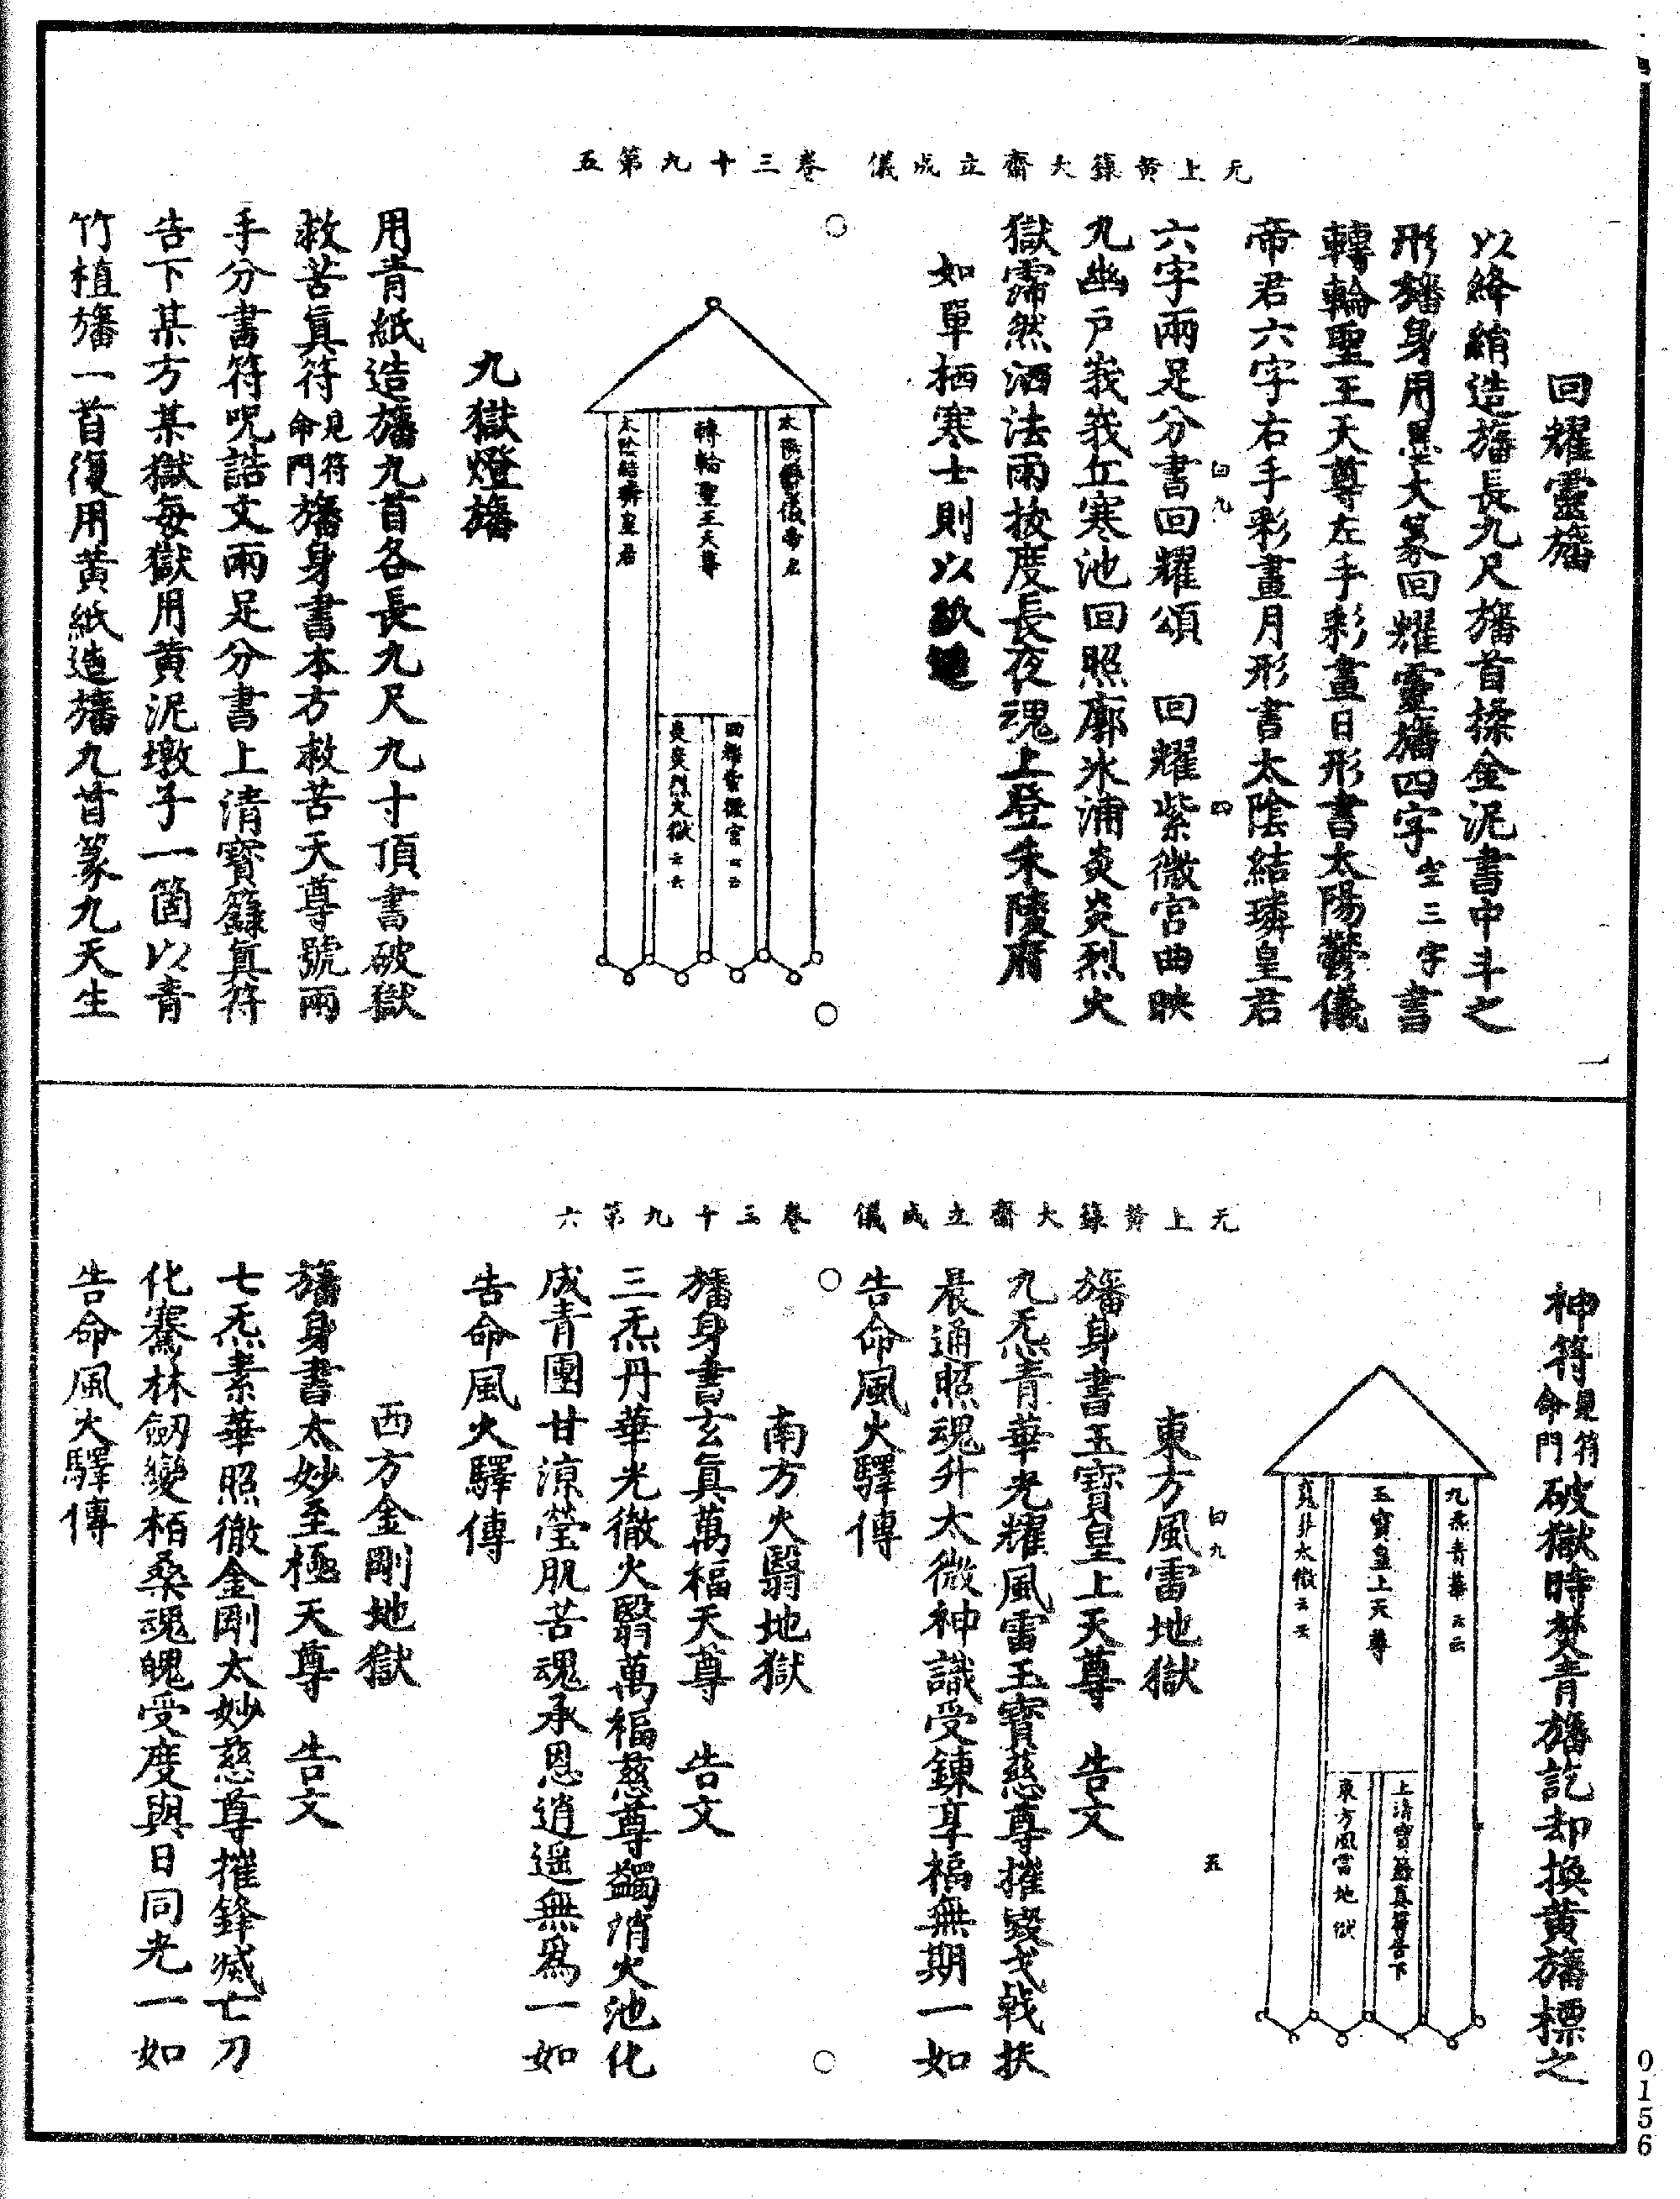 元上黄籙大齋立成儀 卷三十九第五
回耀靈旛
以絳綃造旛長九尺旛首揉金泥書中斗之
形旛身用墨大篆回耀靈旛四字空三字書
轉輪聖王天尊左手彩畫日形書太陽鬱儀
帝君六字右手彩畫月形書太陰結璘皇君
六字兩足分書回耀頌 回耀紫微宮曲映
九幽戶峩峩丘寒池回照廓氷浦炎炎烈火
獄霈然洒法雨拔度長夜魂上登朱陵府
如單栖寒士則以紙造
曰九
四
太陽鬱儀帝君
轉輪聖王天尊
太陰結璘皇君
回耀紫微宮云云
炎炎烈火獄云云
九獄燈旛
用青紙造旛九首各長九尺九寸頂書破獄
救苦眞符見符命門旛身書本方救苦天尊號兩
手分書符呪誥文兩足分書上清寶籙眞符
告下某方某獄每獄用黄泥墩子一箇以青
竹植旛一首復用黄紙造旛九首篆九天生
元上黄籙大齋立成儀 卷三十九第六
神符見符命門破獄時焚青旛訖却換黄旛標之
九炁青華云云
玉寶皇上天尊
魂升太微云云
上清寶籙眞符告下
東方風雷地獄
曰九
五
東方風雷地獄
旛身書玉寶皇上天尊 告文
九炁青華光耀風雷玉寶慈尊摧毀戈戟扶
晨通照魂升太微神識受鍊享福無期一如
告命風火驛傳
南方火翳地獄
旛身書玄眞萬福天尊 告文
三炁丹華光徹火翳萬福慈尊蠲消火池化
成青團甘涼瑩肌苦魂承恩逍遥無爲一如
告命風火驛傳
西方金剛地獄
旛身書太妙至極天尊 告文
七炁素華照徹金剛太妙慈尊摧鋒滅亡刀
化騫林劒變栢桑魂魄受度與日同光一如
告命風火驛傳
0156